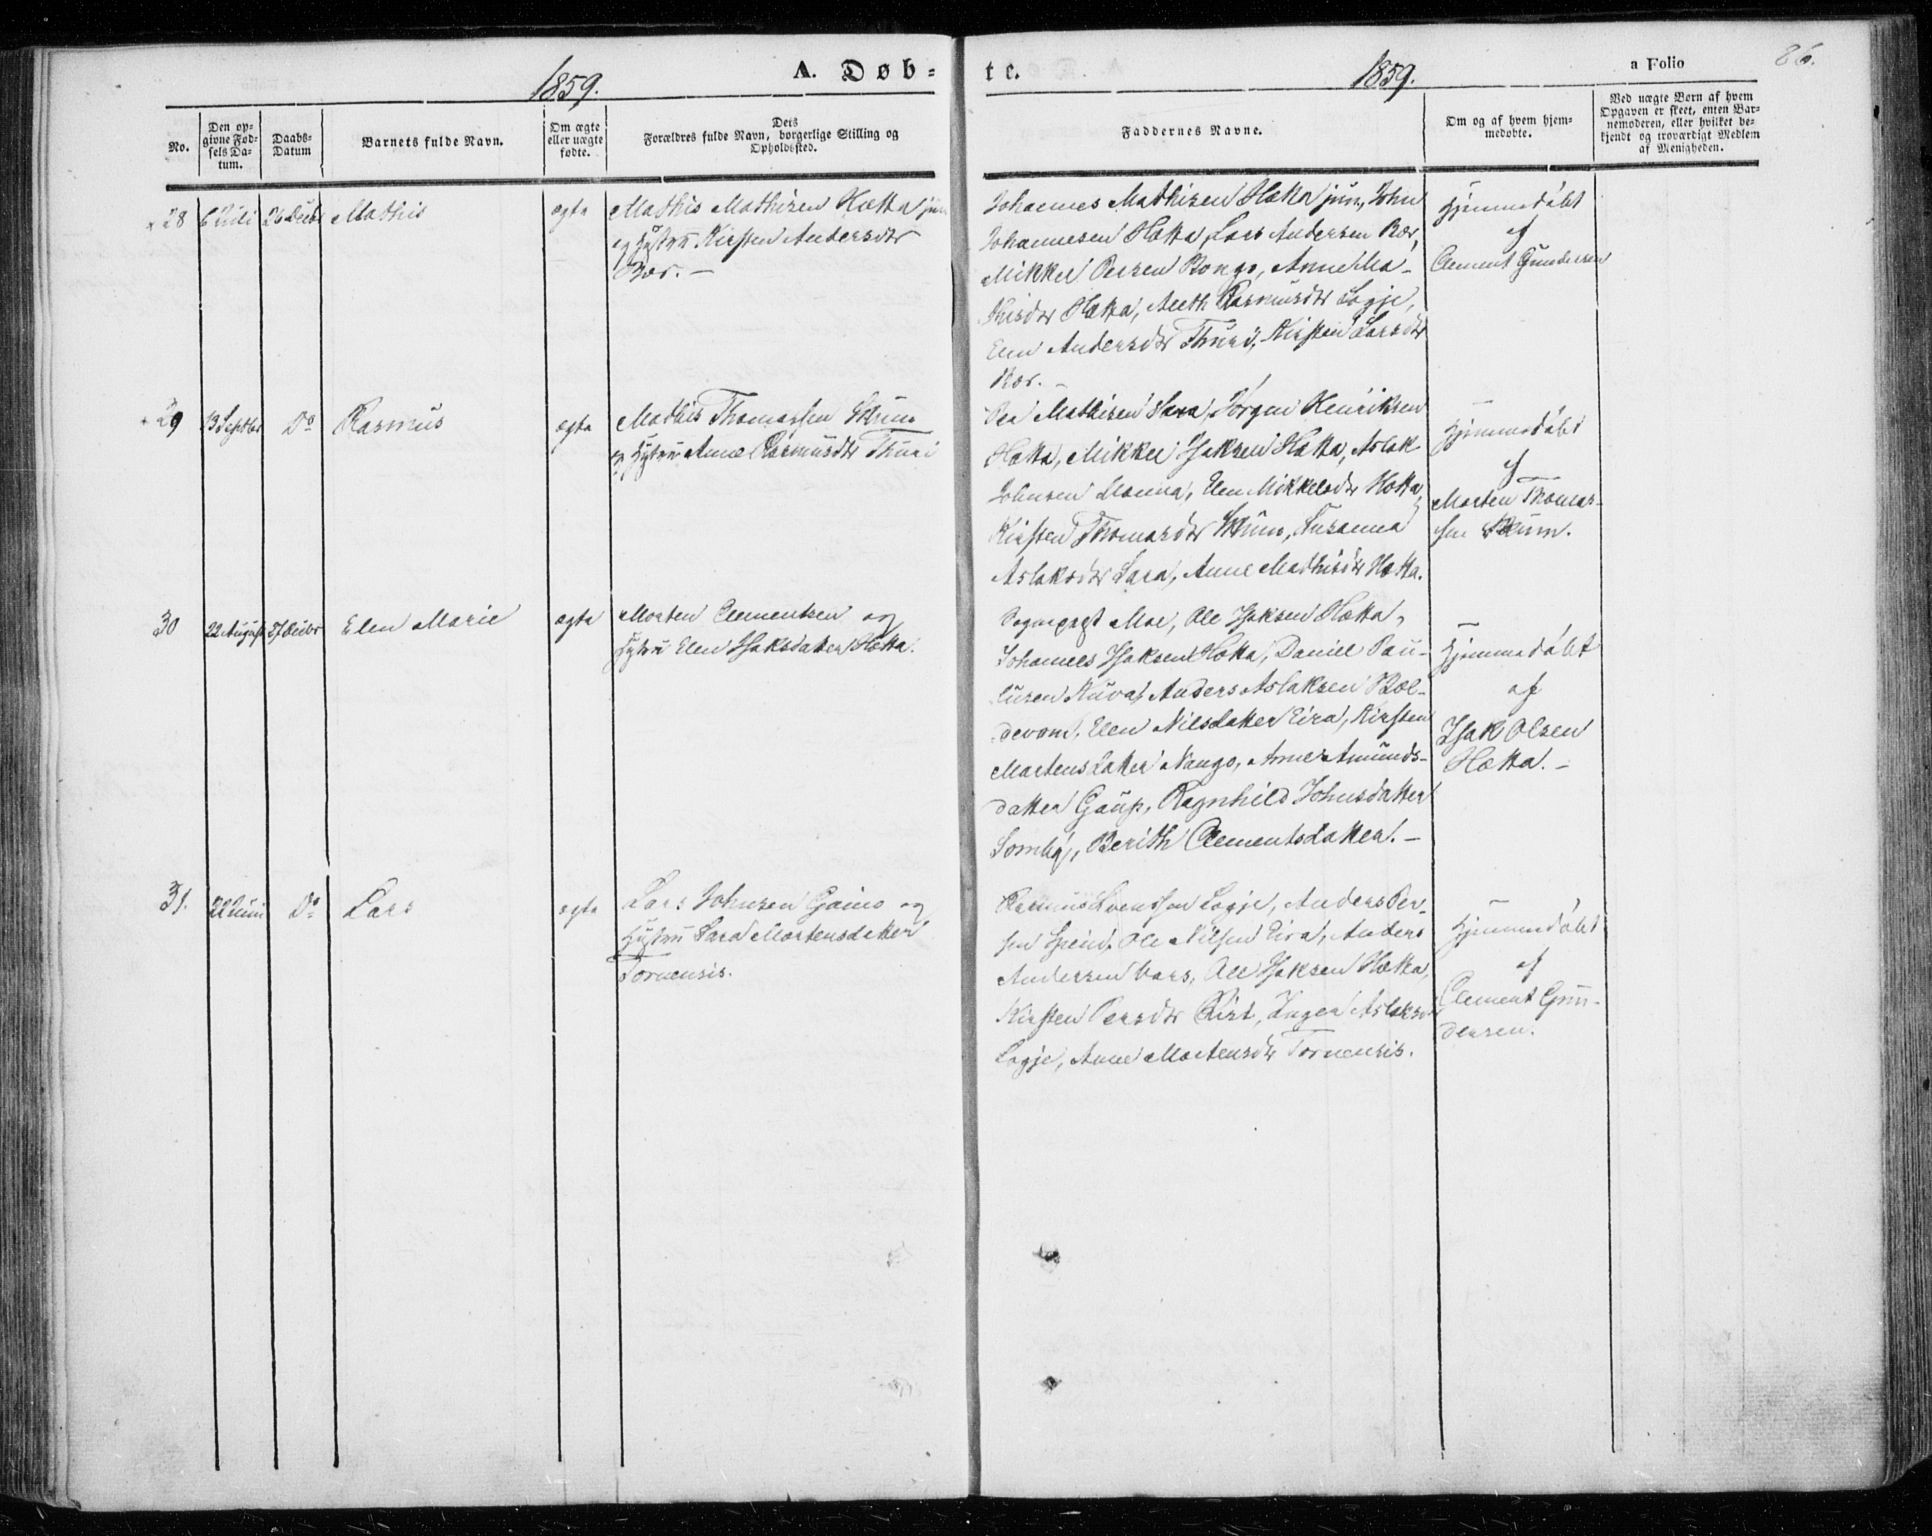 1859.
A. Døb-
te.
1859.
a Folio
86.
No.
Den op-
givne Fød-
sels Da-
tum.
Daabs-
Datum
Barnets fulde Navn.
Om ægte
eller uægte
fødte.
Dets
Forældres fulde Navn, borgerlige Stilling og
Opholdssted.
Faddernes Navne.
Om og af hvem hjem-
medøbte.
Ved uægte Børn af hvem
Opgaven er skeet, enten Bar-
nemoderen, eller hvilket be-
kjendt og troværdigt Medlem
af Menigheden.
28 6 Juli 26 Decbr Mathis ægte
Mathis Mathisen Hætta jun
og Hustru Kirsten Andersdtr
Bær. -
Johannes Mathisen Hætta jun, John
Johannesen Hætta, Lars Andersen Bær,
Mikkel Persen Bongo, Anne Ma-
thisdtr Hætta, Ane Rasmusdtr Logje,
Elen Andersdtr Thuri, Kirsten Larsdtr
Bær. -
Hjemmedøbt
af
Clement Gundersen
29 13 Septbr Do Rasmus ægte
Mathis Thomassen Skum
og Hustru Anne Rasmusdtr Thuri
Per Mathisen Sara, Jørgen Henriksen
Hætta, Mikkel Isaksen Hætta, Aslak
Johnsen Manna, Elen Mikkelsdtr Hætta,
Kirsten Thomasdtr Skum, Susanna
Aslaksdtr Sara, Anne Mathisdtr Hætta.
Hjemmedøbt
af
Morten Thomas-
sen Skum.
30 22 August 27 Decbr Elen Marie ægte
Morten Clementsen og
Hustru Elen Isaksdatter Hætta.
Sognepræst Moe, Ole Isaksen Hætta,
Johannes Isaksen Hætta, Daniel Pau-
lusen Kuva, Anders Aslaksen Bæl-
devom, Elen Nilsdatter Eira, Kirsten
Mortensdatter Nango, Anne Amunds-
datter Gaup, Ragnhild Johnsdatter
Somby, Berith Clementsdatter. -
Hjemmedøbt
af
Isak Olsen
Hætta. -
31. 22 Juni Do Lars ægte
Lars Johnsen Gaino og
Hustru Sara Mortensdatter
Tornensis.
Rasmus Svendsen Logje, Anders Per-
sen Spein, Ole Nilsen Eira, Anders
Andersen Vars, Ole Isaksen Hætta,
Kirsten Persdtr Rist, Inger Aslaksd
Logje, Anne Mortensdtr Tornensis.
Hjemmedøbt
af
Clement Gun-
dersen.